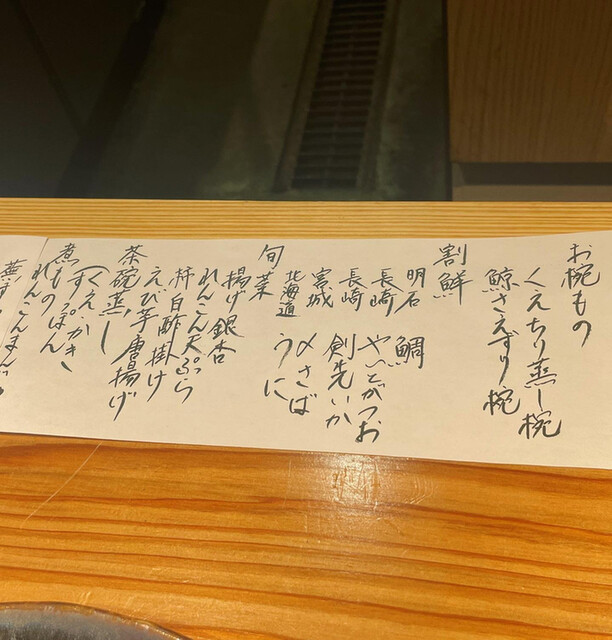 お椀もの
くえちり蒸し椀
鯨さえずり椀
割鮮
明石 鯛
長崎 やいとがつお
長崎 剣先いか
宮城 〆さば
北海道 うに
旬菜
揚げ銀杏
れんこん天ぷら
柿白酢掛け
えび芋唐揚げ
茶碗蒸し
くえ かき
すっぽん
煮もの
れんこんまんじゅう